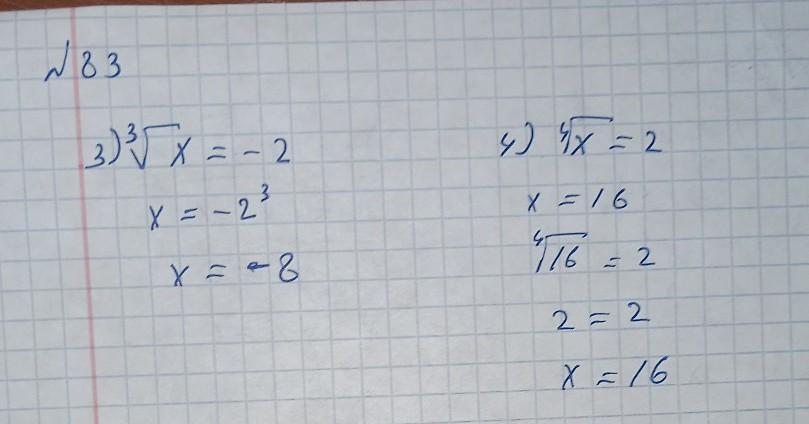 №83
3) ∛x = -2
x = -2³
x = -8
4) ∜x = 2
x = 16
∜16 = 2
2 = 2
x = 16